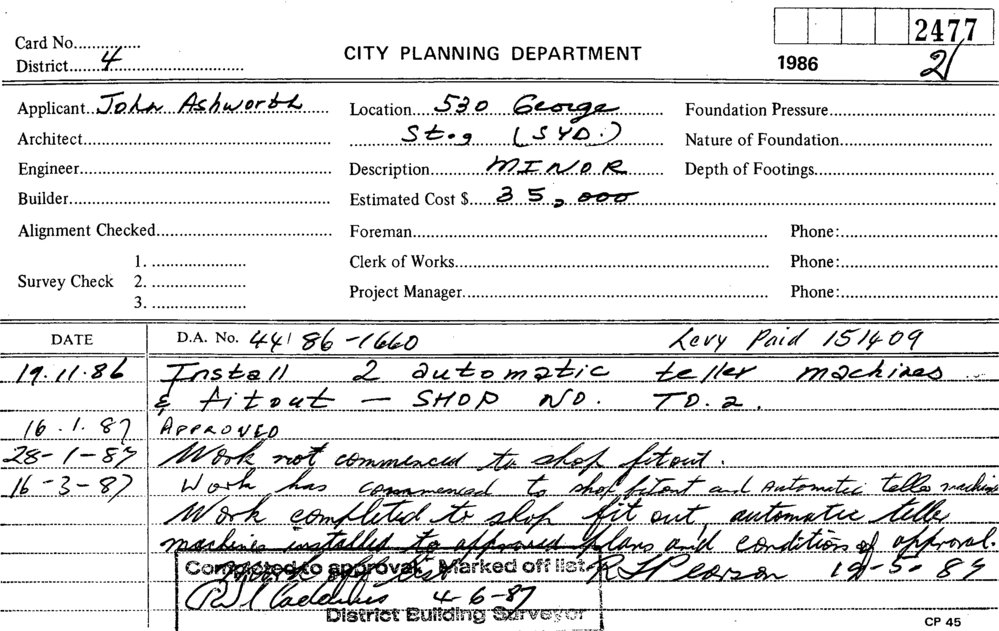 2477
Card No.
District 4
CITY PLANNING DEPARTMENT
1986
2/
Applicant John Ashworth
Location 530 George
Foundation Pressure
Architect
St., (SYD.)
Nature of Foundation
Engineer
Description MINOR
Depth of Footings
Builder
Estimated Cost $ 35,000
Alignment Checked
Foreman
Phone:
Survey Check
1.
2.
3.
Clerk of Works
Phone:
Project Manager
Phone:
DATE
D.A. No. 44/86-1660
Levy Paid 151409
19.11.86 Install 2 automatic teller machines
& fitout — SHOP NO. TD.2.
16.1.87 APPROVED
28-1-87 Work not commenced to shop fitout.
16-3-87 Work has commenced to shop fitout and Automatic teller machine
Work completed to shop fit out, automatic teller
machines installed to approved plans and conditions of approval.
Completed to approval, Marked off list
Pearson 19-5-87
4-6-87
District Building Surveyor
CP 45